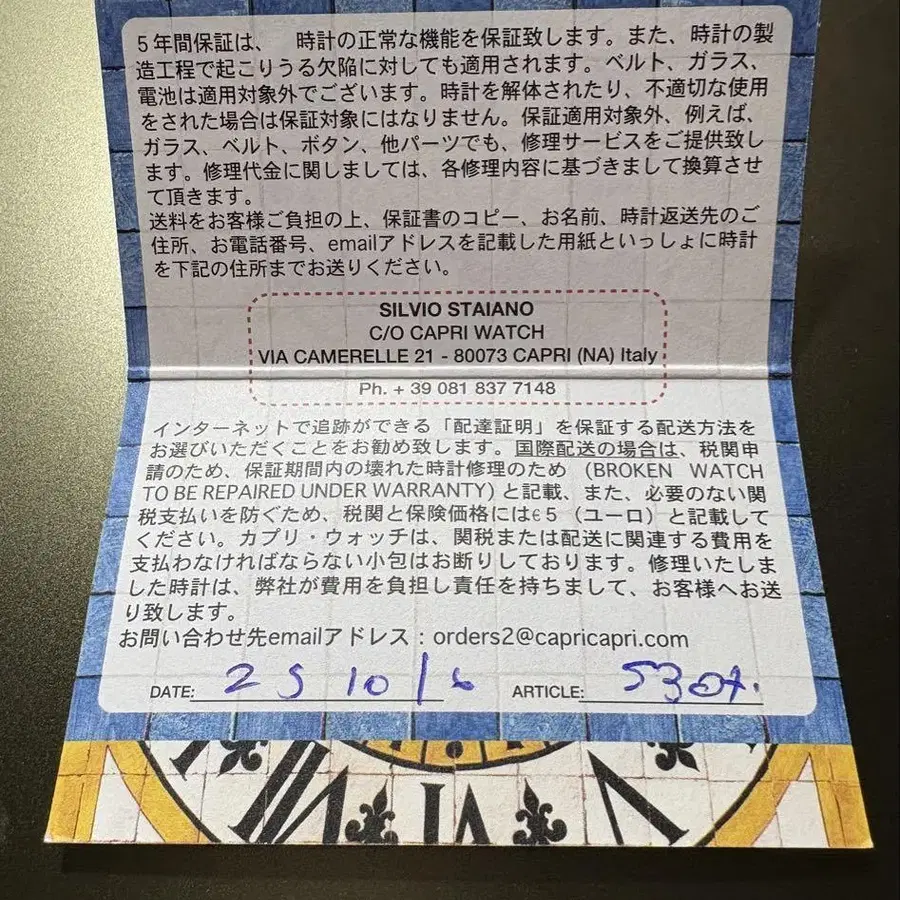 5年間保証は、　時計の正常な機能を保証致します。また、時計の製
造工程で起こりうる欠陥に対しても適用されます。ベルト、ガラス、
電池は適用対象外でございます。時計を解体されたり、不適切な使用
をされた場合は保証対象にはなりません。保証適用対象外、例えば、
ガラス、ベルト、ボタン、他パーツでも、修理サービスをご提供致し
ます。修理代金に関しましては、各修理内容に基づきまして換算させ
て頂きます。
送料をお客様ご負担の上、保証書のコピー、お名前、時計返送先のご
住所、お電話番号、emailアドレスを記載した用紙といっしょに時計
を下記の住所までお送りください。
SILVIO STAIANO
C/O CAPRI WATCH
VIA CAMERELLE 21 - 80073 CAPRI (NA) Italy
Ph. + 39 081 837 7148
インターネットで追跡ができる「配達証明」を保証する配送方法を
お選びいただくことをお勧め致します。国際配送の場合は、税関申
請のため、保証期間内の壊れた時計修理のため (BROKEN WATCH
TO BE REPAIRED UNDER WARRANTY) と記載、また、必要のない関
税支払いを防ぐため、税関と保険価格には€5（ユーロ）と記載して
ください。カプリ・ウォッチは、関税または配送に関連する費用を
支払わなければならない小包はお断りしております。修理いたしま
した時計は、弊社が費用を負担し責任を持ちまして、お客様へお送
り致します。
お問い合わせ先emailアドレス：orders2@capricapri.com
DATE: 25 10/6 ARTICLE: